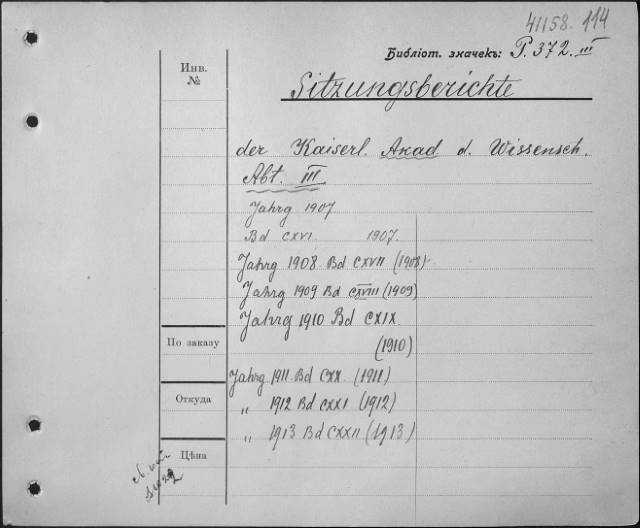 41158. 114
Библіот. значекъ: P. 372. III
Инв.
№
Sitzungsberichte
der Kaiserl. Akad d. Wissensch.
Abt. III
Jahrg 1907
Bd CXVI 1907.
Jahrg 1908 Bd CXVII (1908)
Jahrg 1909 Bd CXVIII (1909)
Jahrg 1910 Bd CXIX
(1910)
По заказу
Jahrg. 1911. Bd CXX. (1911)
Откуда
„ 1912 Bd CXXI (1912)
„ 1913 Bd CXXII (1913)
Цѣна